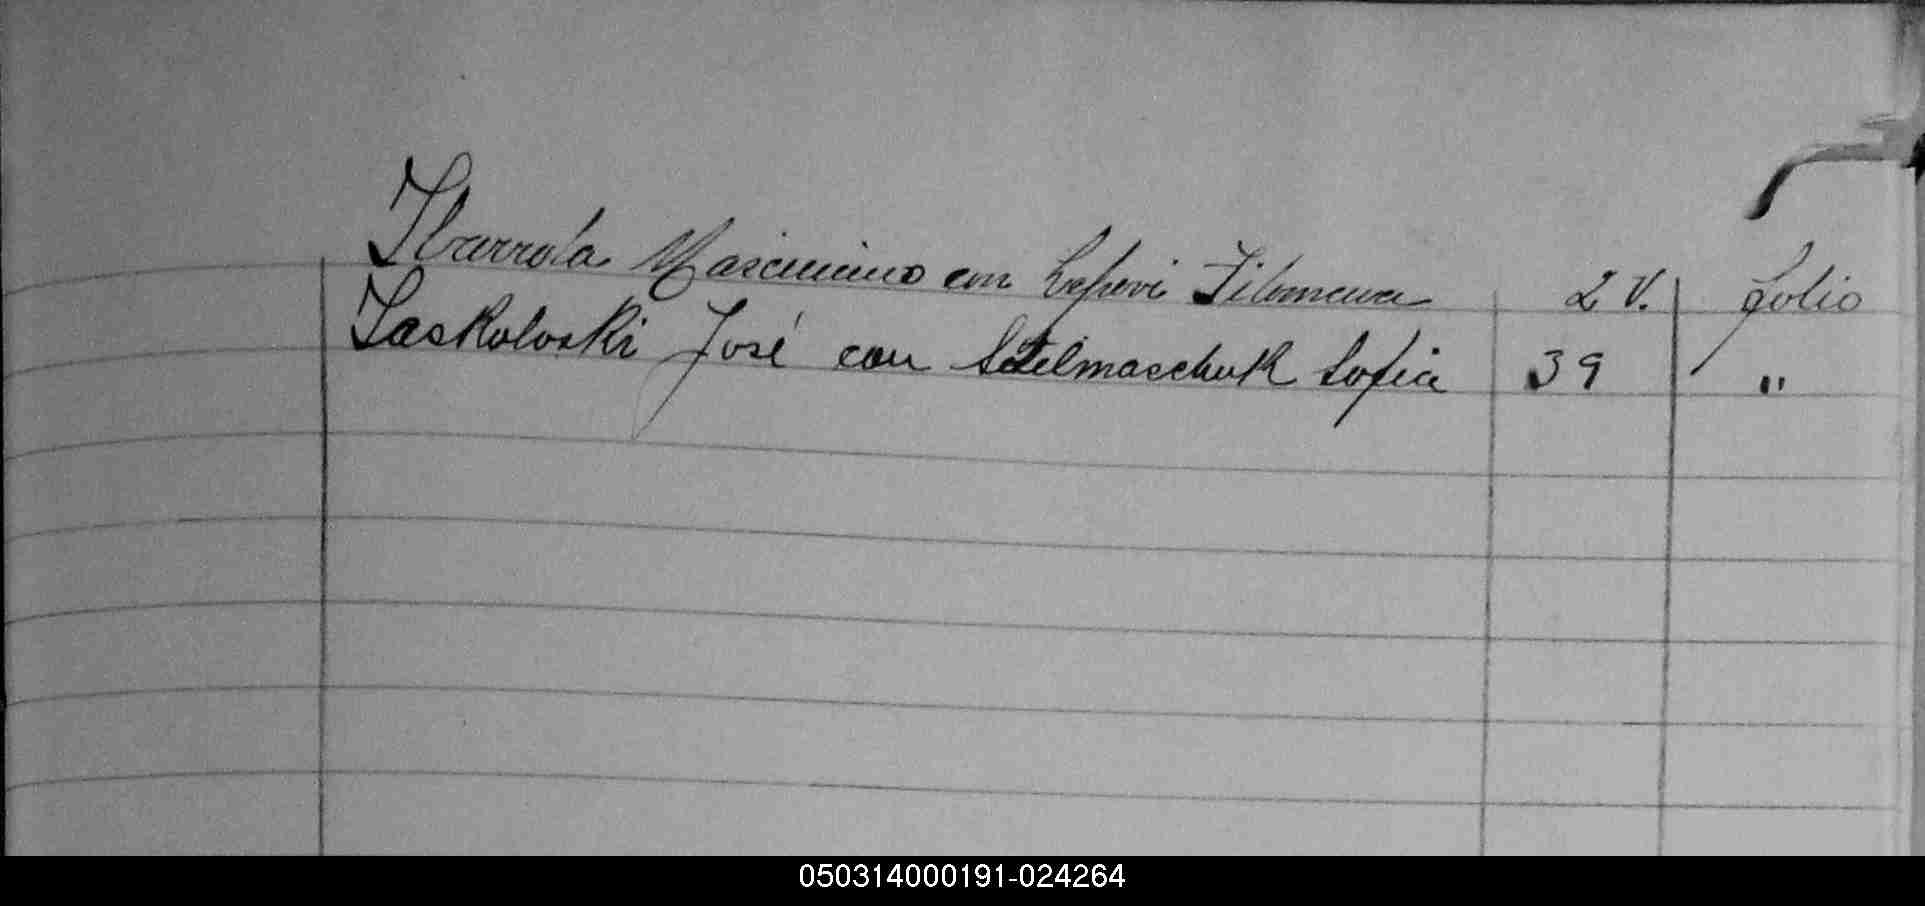 Ibarrola Marciniano con Filomena 2 V. folio
Jaskoloski José con Stelmaschuk Sofia 39 "
050314000191-024264